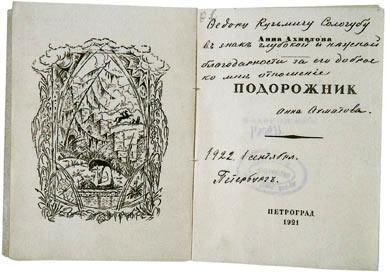 Ѳедору Кузьмичу Сологубу
Анна Ахматова
въ знакъ глубокой и
благодарности за его доброе
ко мнѣ отношеніе
ПОДОРОЖНИК
Анна Ахматова.
1922 1 сентября.
Петербургъ.
ПЕТРОГРАД
1921